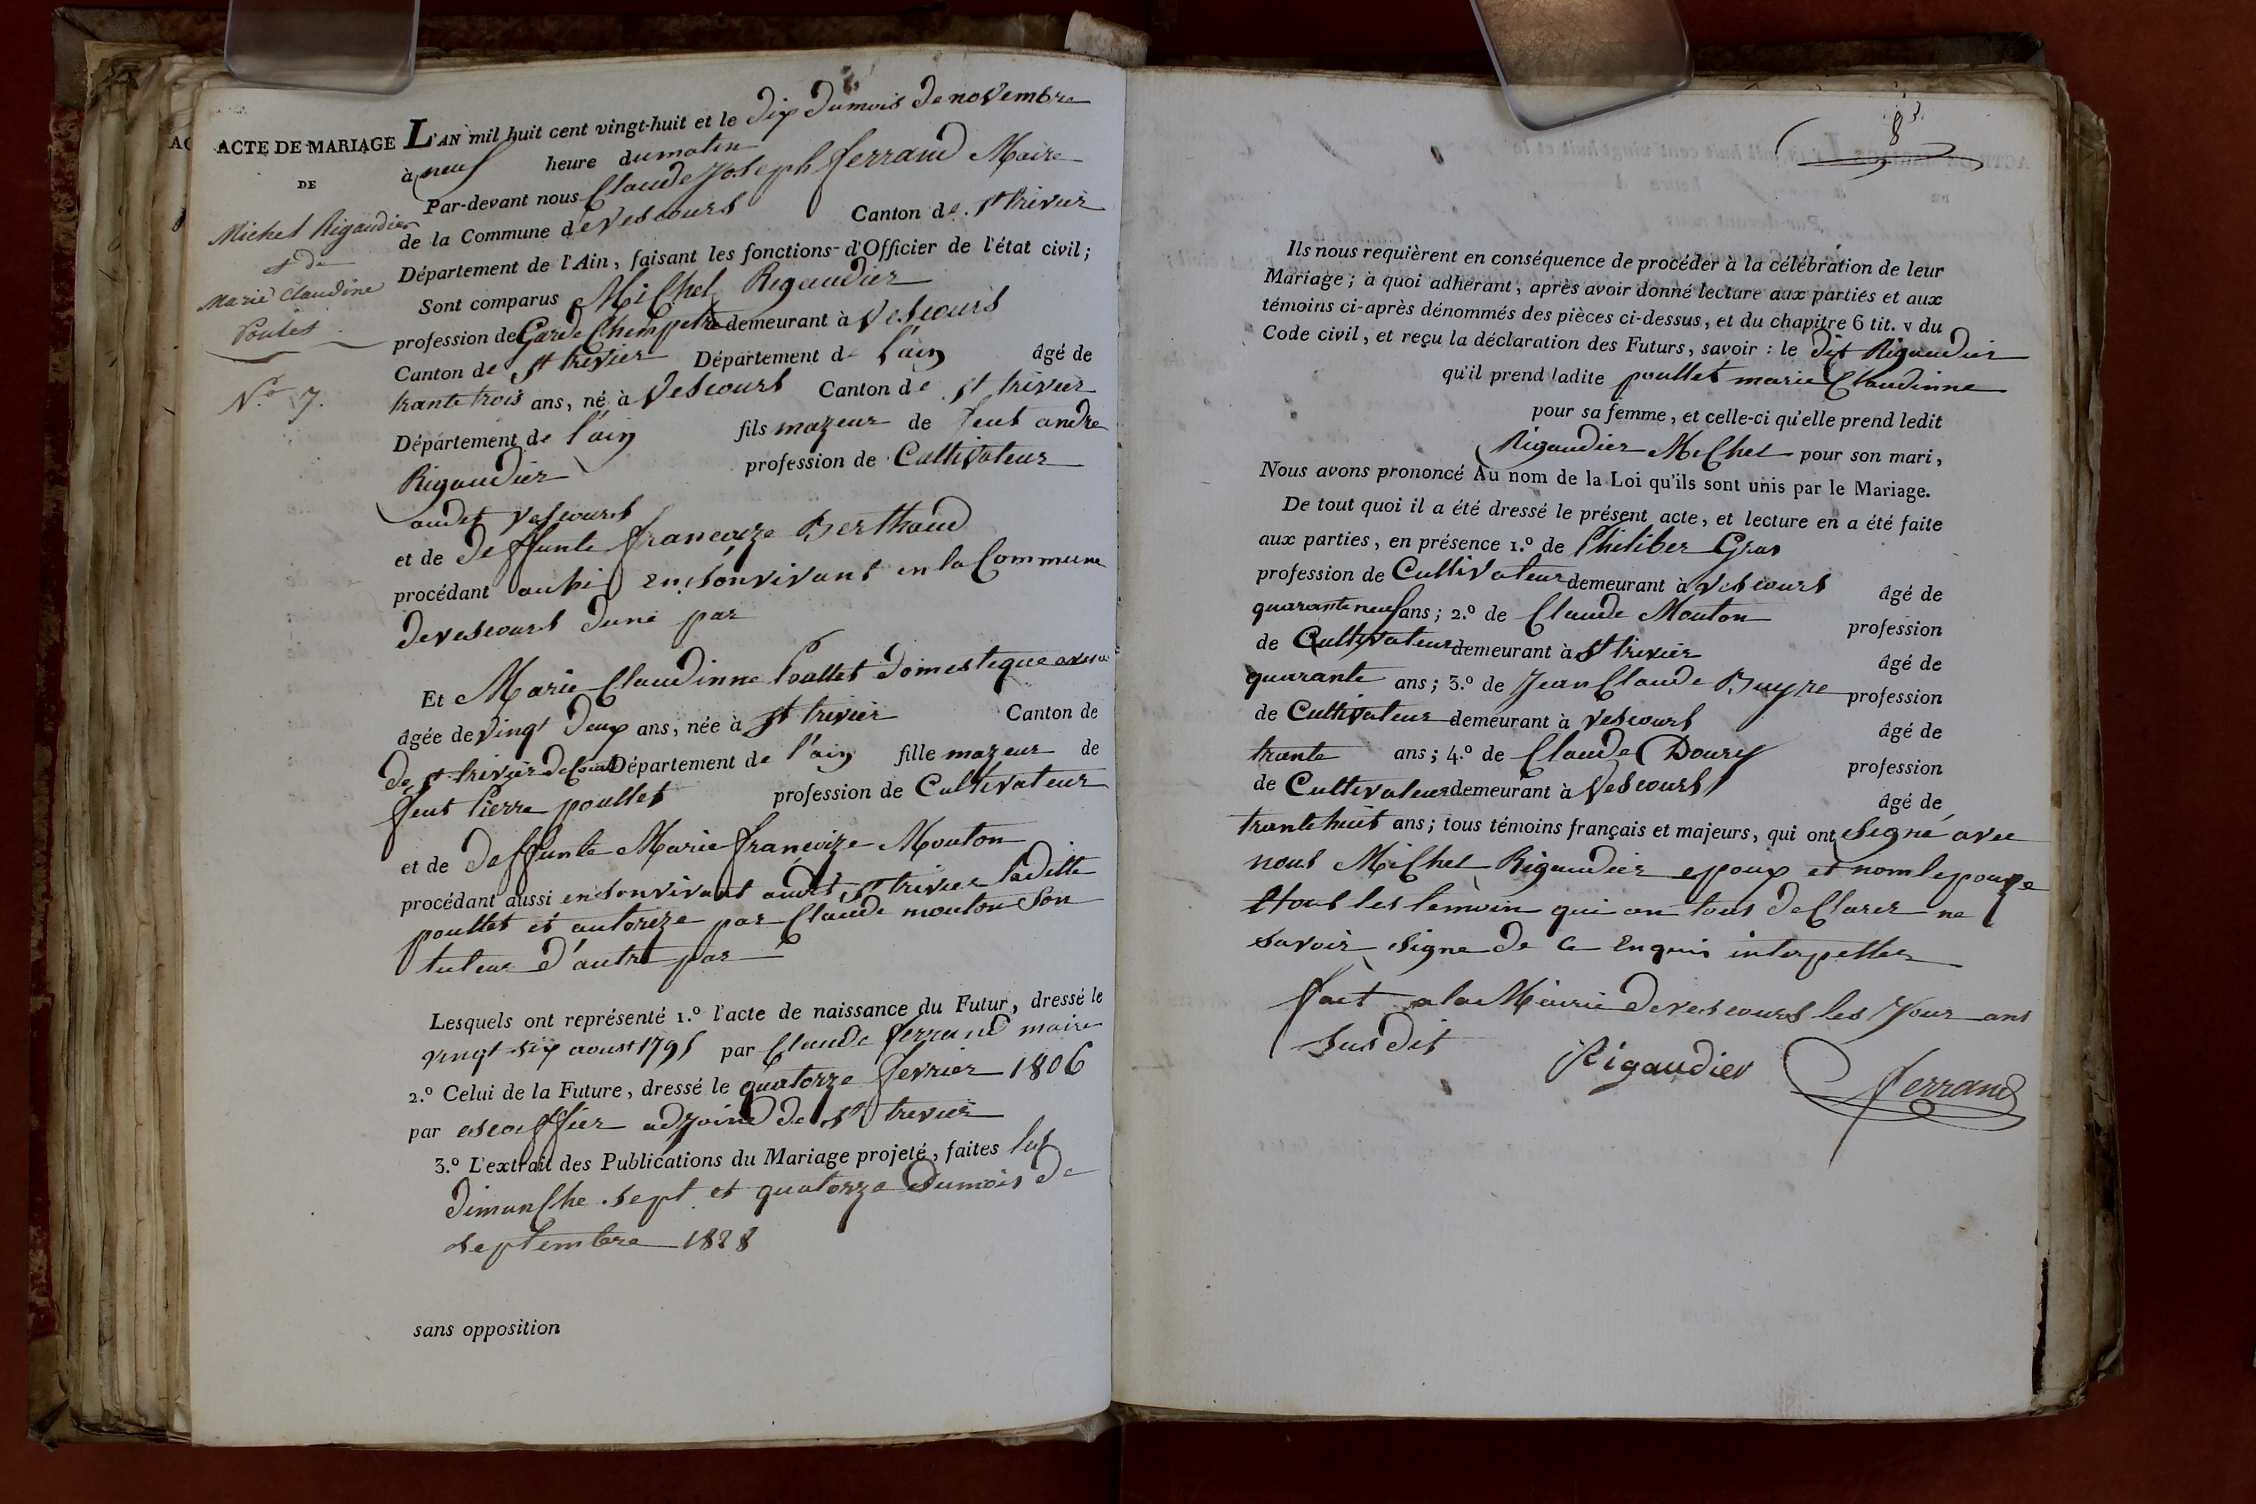 ACTE DE MARIAGE
DE
Michel Rigaudier
et de
Marie Claudine
Poulet
N.º 7.
L'AN mil huit cent vingt-huit et le dix du mois de novembre
à neuf heure du matin
Par-devant nous Claude Joseph ferrand Maire
de la Commune de Vescours Canton de St trivier
Département de l'Ain, faisant les fonctions d'Officier de l'état civil;
Sont comparus Michel Rigaudier
profession de Garde Champetre demeurant à Vescours
Canton de St trivier Département de l'ain âgé de
trante trois ans, né à Vescours Canton de St trivier
Département de l'ain fils mazeur de feut andre
Rigaudier profession de Cultivateur
audit Vescours
et de deffunte francoize Berthaud
procédant aussi en son vivant en la Commune
de vescours dune par
Et Marie Claudinne Poullet domestique
âgée de vingt deux ans, née à St trivier Canton de
de St trivier de Courtes Département de l'ain fille mazeur de
feut Pierre poullet profession de Cultivateur
et de deffunte Marie francoize Mouton
procédant aussi en son vivant audit St trivier laditte
poullet et autorize par Claude mouton son
tuteur d'autre par
Lesquels ont représenté 1.º l'acte de naissance du Futur, dressé le
vingt six aoust 1795 par Claude ferrand maire
2.º Celui de la Future, dressé le quatorze fevrier 1806
par escoffier adjoind de St trivier
3.º L'extrait des Publications du Mariage projeté, faites les
dimanche sept et quatorze du mois de
septembre 1828
sans opposition
8
Ils nous requièrent en conséquence de procéder à la célébration de leur
Mariage; à quoi adhérant, après avoir donné lecture aux parties et aux
témoins ci-après dénommés des pièces ci-dessus, et du chapitre 6 tit. v du
Code civil, et reçu la déclaration des Futurs, savoir : le dit Rigaudier
qu'il prend ladite poullet marie Claudinne
pour sa femme, et celle-ci qu'elle prend ledit
Rigaudier Michel pour son mari,
Nous avons prononcé Au nom de la Loi qu'ils sont unis par le Mariage.
De tout quoi il a été dressé le présent acte, et lecture en a été faite
aux parties, en présence 1.º de Philiber Gras
profession de Cultivateur demeurant à Vescours âgé de
quarante neuf ans; 2.º de Claude Mouton profession
de Cultivateur demeurant à St trivier âgé de
quarante ans; 3.º de Jean Claude Buyre profession
de Cultivateur demeurant à Vescours âgé de
trante ans; 4.º de Claude Doury profession
de Cultivateur demeurant à Vescours âgé de
trante huit ans; tous témoins français et majeurs, qui ont signé avec
nous Michel Rigaudier epoux et nom lepouze
et tous les temoin qui on tous declarer ne
savoir signe de ce enquis interpeller
fait a la Mairie de vescours les Jour ans
susdit
Rigaudier ferrand